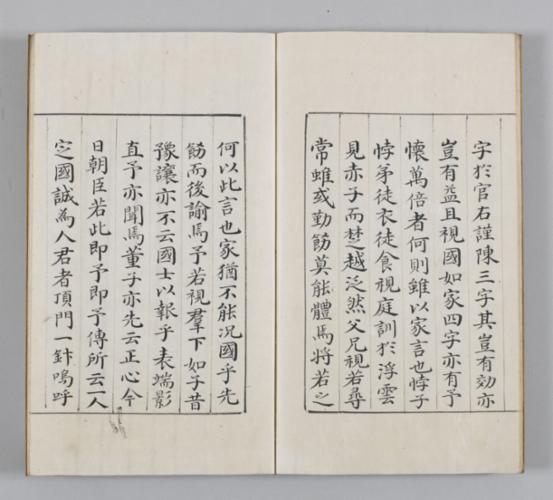 字於官石謹陳三字其豈有効亦
豈有益且視國如家四字亦有予
懷萬倍者何則雖以家言也悖子
悖弟徒衣徒食視庭訓於浮雲
見赤子而楚越泛然父兄視若尋
常雖或勤飭莫能體焉將若之
何以此言也家猶不能況國乎先
飭而後諭焉予若視羣下如子昔
豫讓亦不云國士以報乎表端影
直予亦聞焉董子亦先云正心今
日朝臣若此即予即予傳所云一人
定國誠為人君者頂門一針嗚呼